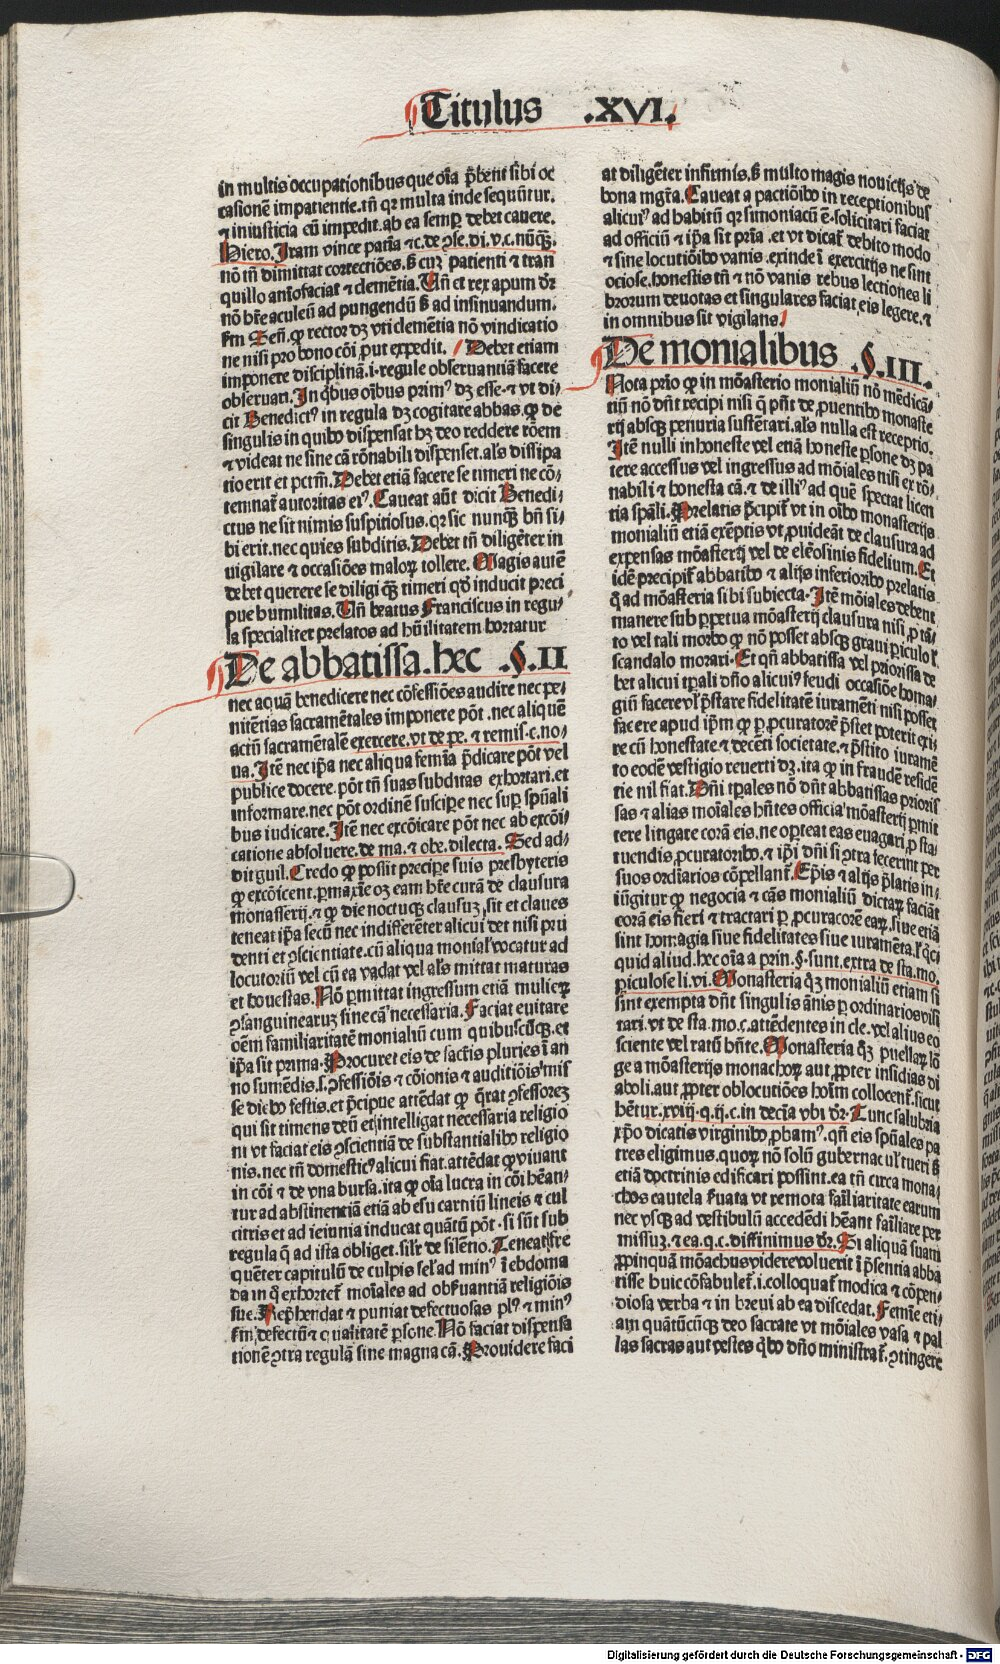 Titulus .XVI.
in multis occupationibus que oīa p̄bent sibi oc
casionē impatientie.tn̄ qꝛ multa inde sequūtur.
⁊ iniusticia eū impedit.ab ea semꝑ debet cauere.
Hiero.Iram vince patiēa ⁊c.de ꝯse.di.v.c.nūqꝫ.
nō tn̄ dimittat correctiōes.ß cuꝫ patienti ⁊ tran
quillo anīo faciat ⁊ clemētia.Un̄ et rex apum dr̄
nō hr̄e aculeū ad pungendū ß ad insinuandum.
ẜm Sen̄.ꝙ rector dꝫ vti clemētia nō vindicatio
ne nisi pro bono cōi ꝓut expedit. Debet etiam
imponere disciplinā.i.regule obseruantiā facere
obseruari.In qͥbus oībus primꝰ dꝫ esse.⁊ vt di⸗
cit Benedictꝰ in regula dꝫ cogitare abbas.ꝙ de
singulis in quibꝰ dispensat hꝫ deo reddere rōem
⁊ videat ne sine cā rōnabili dispenset.als dissipa
tio erit et pctm̄.Debet etiā facere se timeri ne cō⸗
temnat̄ autoritas eiꝰ.Caueat aūt dicit Benedi⸗
ctus ne sit nimis suspitiosus.qꝛ sic nunqꝫ bn̄ si⸗
bi erit.nec quies subditis.Debet tn̄ diligēter in
uigilare ⁊ occasiōes maloꝝ tollere. Magis autē
debet querere se diligi qꝫ timeri qd̄ inducit preci
pue humilitas.Un̄ beatus Franciscus in regu⸗
la specialiter prelatos ad hūilitatem hortatur
De abbatissa.hec .§.II
nec aquā benedicere nec cōfessiōes audire nec pe⸗
nitētias sacramētales imponere pōt .nec aliquē
actū sacramētalē exercere.vt de pe.⁊ remis.c.no⸗
ua.Itē nec ip̄a nec aliqua femīa p̄dicare pōt vel
publice docere.pōt tn̄ suas subditas exhortari.et
informare.nec pōt ordinē suscipe nec suꝑ spūali
bus iudicare.Itē nec excōicare pōt nec ab excōi⸗
catione absoluere.de ma.⁊ obe.dilecta. Sed ad⸗
dit guil.Credo ꝙ possit precipe suis presbyteris
ꝙ excōicent.ꝑmaxīe cꝫ eam hr̄e curā de clausura
monasterij.⁊ ꝙ die noctuqꝫ clausuꝫ sit et claues
teneat ip̄a secū nec indifferēter alicui det nisi pru
denti et ꝯscientiate.cū aliqua monial vocatur ad
locutoriū vel cū ea vadat vel als mittat maturas
et honestas.Nō ꝑmittat ingressum etiā mulieꝝ
ꝯsanguinearuꝫ sine cāˢ necessaria. Faciat euitare
oēm familiaritatē monialiū cum quibuscūqꝫ.et
ip̄a sit prima.Procuret eis de sacr̄is pluries ī an
no sumēdis.s.ꝯfessiōis ⁊ cōionis ⁊ auditiōis mis
se diebꝰ festis.et p̄cipue attēdat ꝙ q̄rat ꝯfessoreꝫ
qui sit timens deū et intelligat necessaria religio
ni vt faciat eis ꝯscientiā de substantialibꝰ religio
nis.nec tn̄ domesticꝰ alicui fiat.attēdat ꝙ viuant
in cōi ⁊ de vna bursa.ita ꝙ oīa lucra in cōi hēan⸗
tur ad abstinentiā etiā ab esu carniū lineis ⁊ cul
citris et ad ieiunia inducat quātū pōt.si sūt sub
regula q̄ ad ista obliget.silr̄ de silētio.Teneat fre
quēter capitulū de culpis sel ad minꝰ ī ebdoma
da in q̄ exhortet̄ moīales ad obẜuantiā religiōis
sue.Rep̄hendat ⁊ puniat defectuosas plꝰ ⁊ minꝰ
ẜm defectū ⁊ qualitatē ꝑsone.Nō faciat dispensa
tionē ꝯtra regulā sine magna cā. Prouidere faci
at diligēter infirmis.ß multo magis nouicijs de
bona mgr̄a.Caueat a pactiōibꝰ in receptionibus
alicuiꝰ ad habitū qꝛ simoniacū ē.solicitari faciat
ad officiū ⁊ ip̄a sit prīa .et vt dicat̄ debito modo
⁊ sine locutiōibꝰ vanis .exinde ī exercitijs ne sint
ociose.honestis tn̄ ⁊ nō vanis rebus lectiones li
brorum deuotas et singulares faciat eis legere.⁊
in omnibus sit vigilans.
De monialibus .§.III.
Nota prīo ꝙ in mōasterio monialiū nō mēdicā⸗
tiū nō dn̄t recipi nisi q̄ pn̄t de ꝓuentibꝰ monaste
rij absqꝫ penuria sustētari.als nulla est receptio.
Itē nulli inhoneste vel etiā honeste ꝑsone dꝫ pa
tere accessus vel ingressus ad mōiales nisi ex rō⸗
nabili ⁊ honesta cā.⁊ de illiꝰ ad quē spectat licen
tia spāli.Prelatis p̄cipit̄ vt in oībꝰ monasterijs
monialiū etiā exēptis vt ꝓuideāt de clausura ad
expensas mōasterij vel de eleōsinis fidelium.Et
idē precipit̄ abbatibꝰ ⁊ alijs inferioribꝰ prelatis
q̄ ad mōasteria sibi subiecta.Itē mōiales debent
manere sub ꝑpetua mōasterij clausura nisi ꝓ tā⸗
to vel tali morbo ꝙ nō posset absqꝫ graui ꝑiculo ł
scandalo morari.Et qn̄ abbatissa vel priorissa de
bet alicui tꝑali dn̄o alicuiꝰ feudi occasiōe homa⸗
giū facere vł p̄stare fidelitatē iuramēti nisi posset
facere apud ip̄m ꝙ ꝑ ꝓcuratorē p̄stet poterit exi⸗
re cū honestate ⁊ decēti societate.⁊ p̄stito iuramē
to eodē vestigio reuerti dꝫ.ita ꝙ in fraudē residē
tie nil fiat.Dn̄i tꝑales nō dn̄t abbatissas prioris
sas ⁊ alias moīales hn̄tes officia mōasterij ꝑmit
tere litigare corā eis.ne oꝑteat eas euagari.ꝓ sta⸗
tuendis ꝓcuratoribꝰ.⁊ ip̄i dn̄i si ꝯtra fecerint per
suos ordīarios cōpellant̄.Ep̄is ⁊ alijs p̄latis in⸗
iūgitur ꝙ negocia ⁊ cās monialiū dictaꝝ faciāt
corā eis fieri ⁊ tractari ꝑ ꝓcuracorē eaꝝ.siue etiā
sint homagia siue fidelitates siue iuramēta.ł q̄ci
quid aliud.hec oīa a prin.§.sunt.extra de sta.mo.
ꝑiculose li.vi.Monasteria qꝫ monialiū etiam si
sint exempta dn̄t singulis ānis ꝑ ordinarios visi
tari.vt de sta.mo.c.attēdentes in cle.vel alius eo
sciente vel ratū hn̄te.Monasteria qꝫ puellaꝝ lō
ge a mōasterijs monachoꝝ aut ꝓpter insidias di
aboli.aut ꝓpter oblocutiōes hoīm collocent̄.sicut
hētur.xviij.q.ij.c.in decīa vbi dr̄.Tunc salubria
xp̄o dicatis virginibꝰ ꝓbamꝰ.qn̄ eis spūales pa
tres eligimus.quoꝝ nō solū gubernacul tueri ß
etiā doctrinis edificari possint.ea tn̄ circa mona⸗
chos cautela ẜuata vt remota fałiaritate earum
nec vsqꝫ ad vestibulū accedēdi hēant fałiare per
missuꝫ.⁊ ea.q.c.diffinimus dr̄.Si aliquā suam
ꝓpinquā mōachus videre voluerit ī p̄sentia abba
tisse huic cōfabulet̄.i.colloquat̄ modica ⁊ cōpen⸗
diosa verba ⁊ in breui ab ea discedat.Femīe eti⸗
am quātūcūqꝫ deo sacrate vt mōiales vasa ⁊ pal
las sacras aut vestes qͥbꝰ dn̄o ministrat̄.ꝯtingere
Digitalisierung gefördert durch die Deutsche Forschungsgemeinschaft - DFG